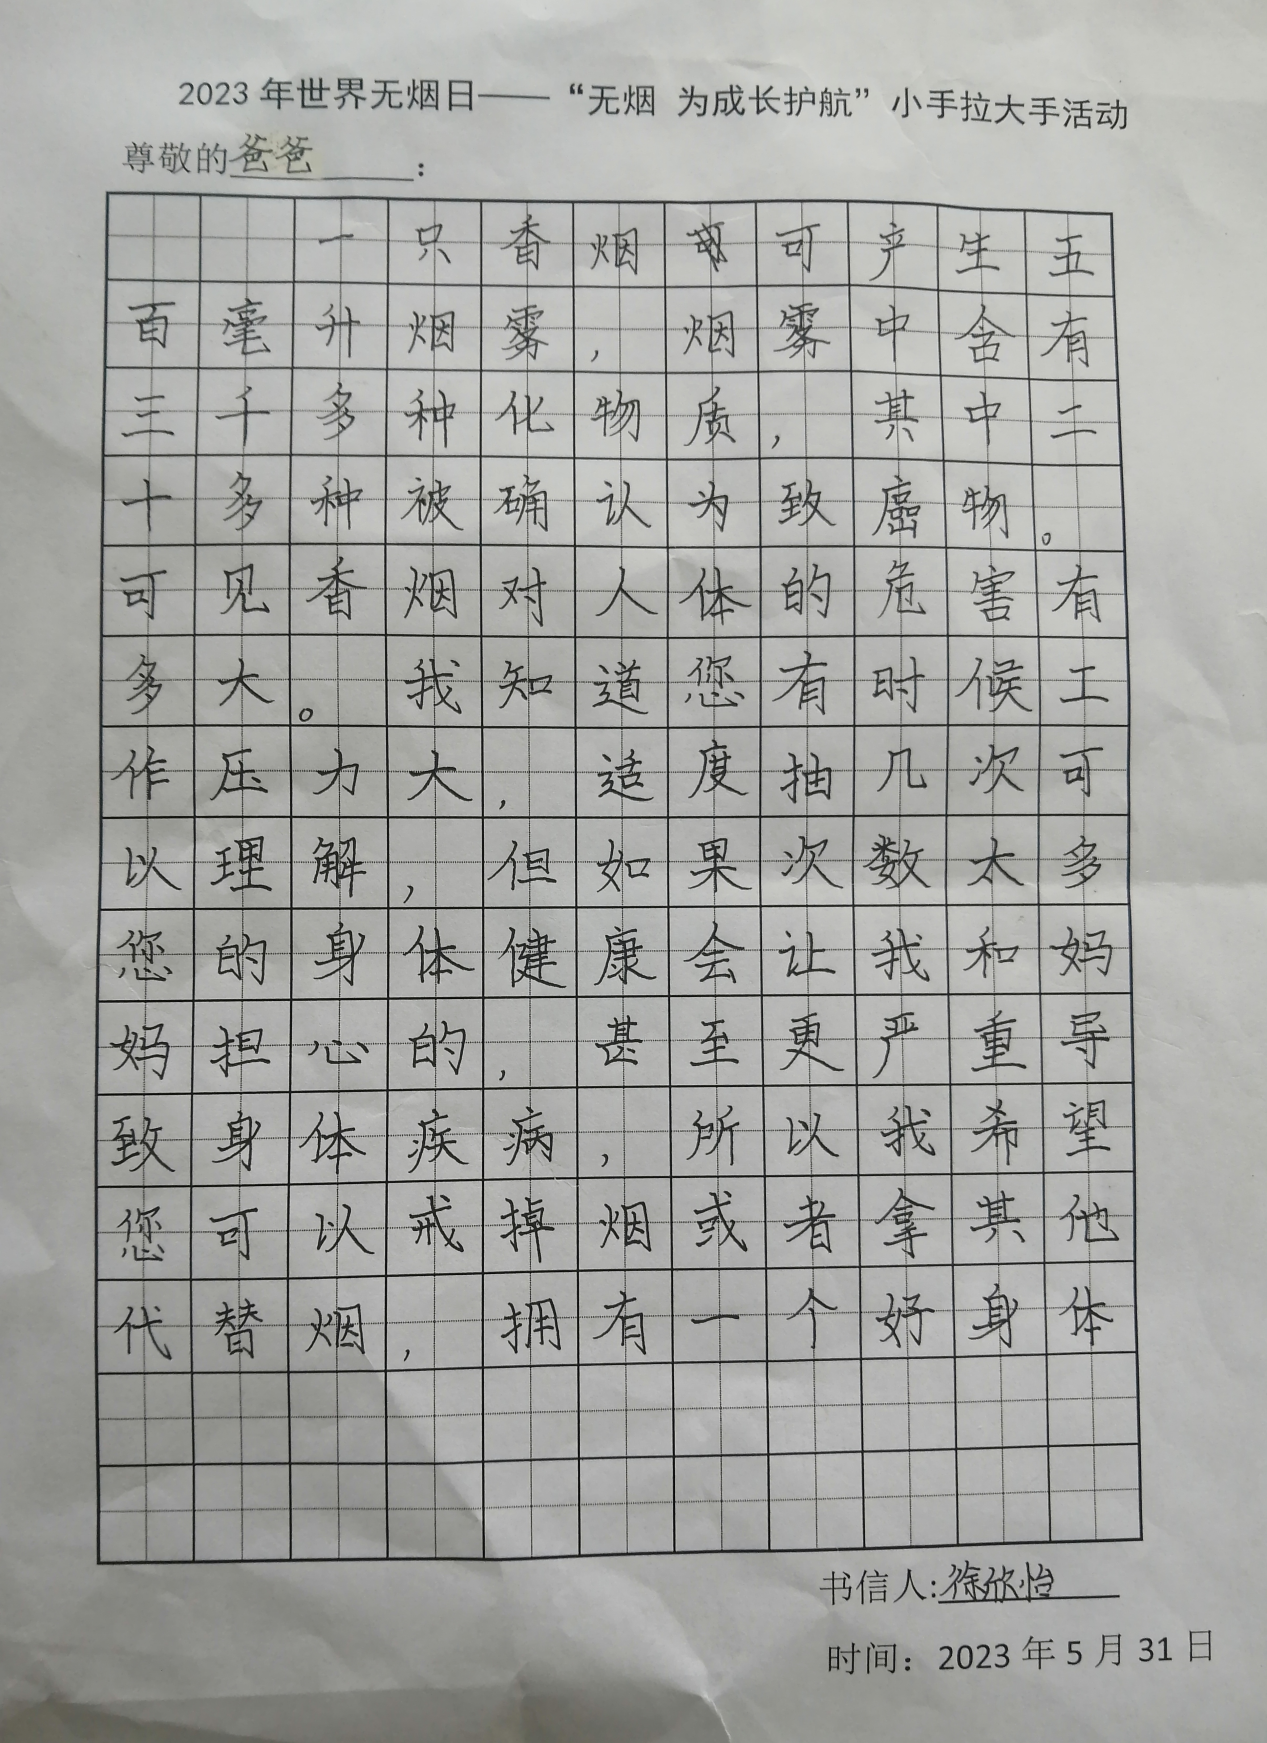 2023 年世界无烟日——“无烟 为成长护航”小手拉大手活动
尊敬的爸爸：
一只香烟可产生五
百毫升烟雾，烟雾中含有
三千多种化物质，其中二
十多种被确认为致癌物。
可见香烟对人体的危害有
多大。我知道您有时候工
作压力大，适度抽几次可
以理解，但如果次数太多
您的身体健康会让我和妈
妈担心的，甚至更严重导
致身体疾病，所以我希望
您可以戒掉烟或者拿其他
代替烟，拥有一个好身体
书信人:徐欣怡
时间：2023 年 5 月 31 日